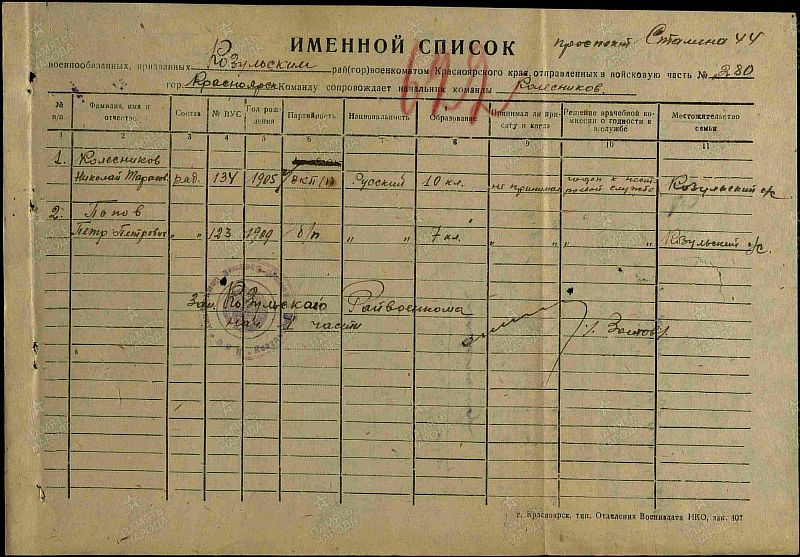 ИМЕННОЙ СПИСОК
проспект Сталина 44
военнообязанных, призванных Козульским рай(гор)военкоматом Красноярского края, отправленных в войсковую часть № 280
гор. Красноярск Команду сопровождает начальник команды Колесников.
692
№ п/п. Фамилия, имя и отчество Состав № ВУС Год рождения Партийность Национальность Образование Принимал ли присягу и когда Решение врачебной комиссии о годности к в/службе Местожительство семьи
1 2 3 4 5 6 7 8 9 10 11
1. Колесников
Николай Тарасов. ряд. 134 1905 ВКП/б Русский 10 кл. не принимал годен к нестроевой службе Козульский с/с
2. Попов
Петр Петрович „ „ 123 1909 б/п „ „ 7 кл. „ „ Козульский с/с
Зам. Козульского Райвоенкома
нач. 1 части
г. Красноярск, тип. Отделения Воениздата НКО, зак. 407
ПАМЯТЬ НАРОДА